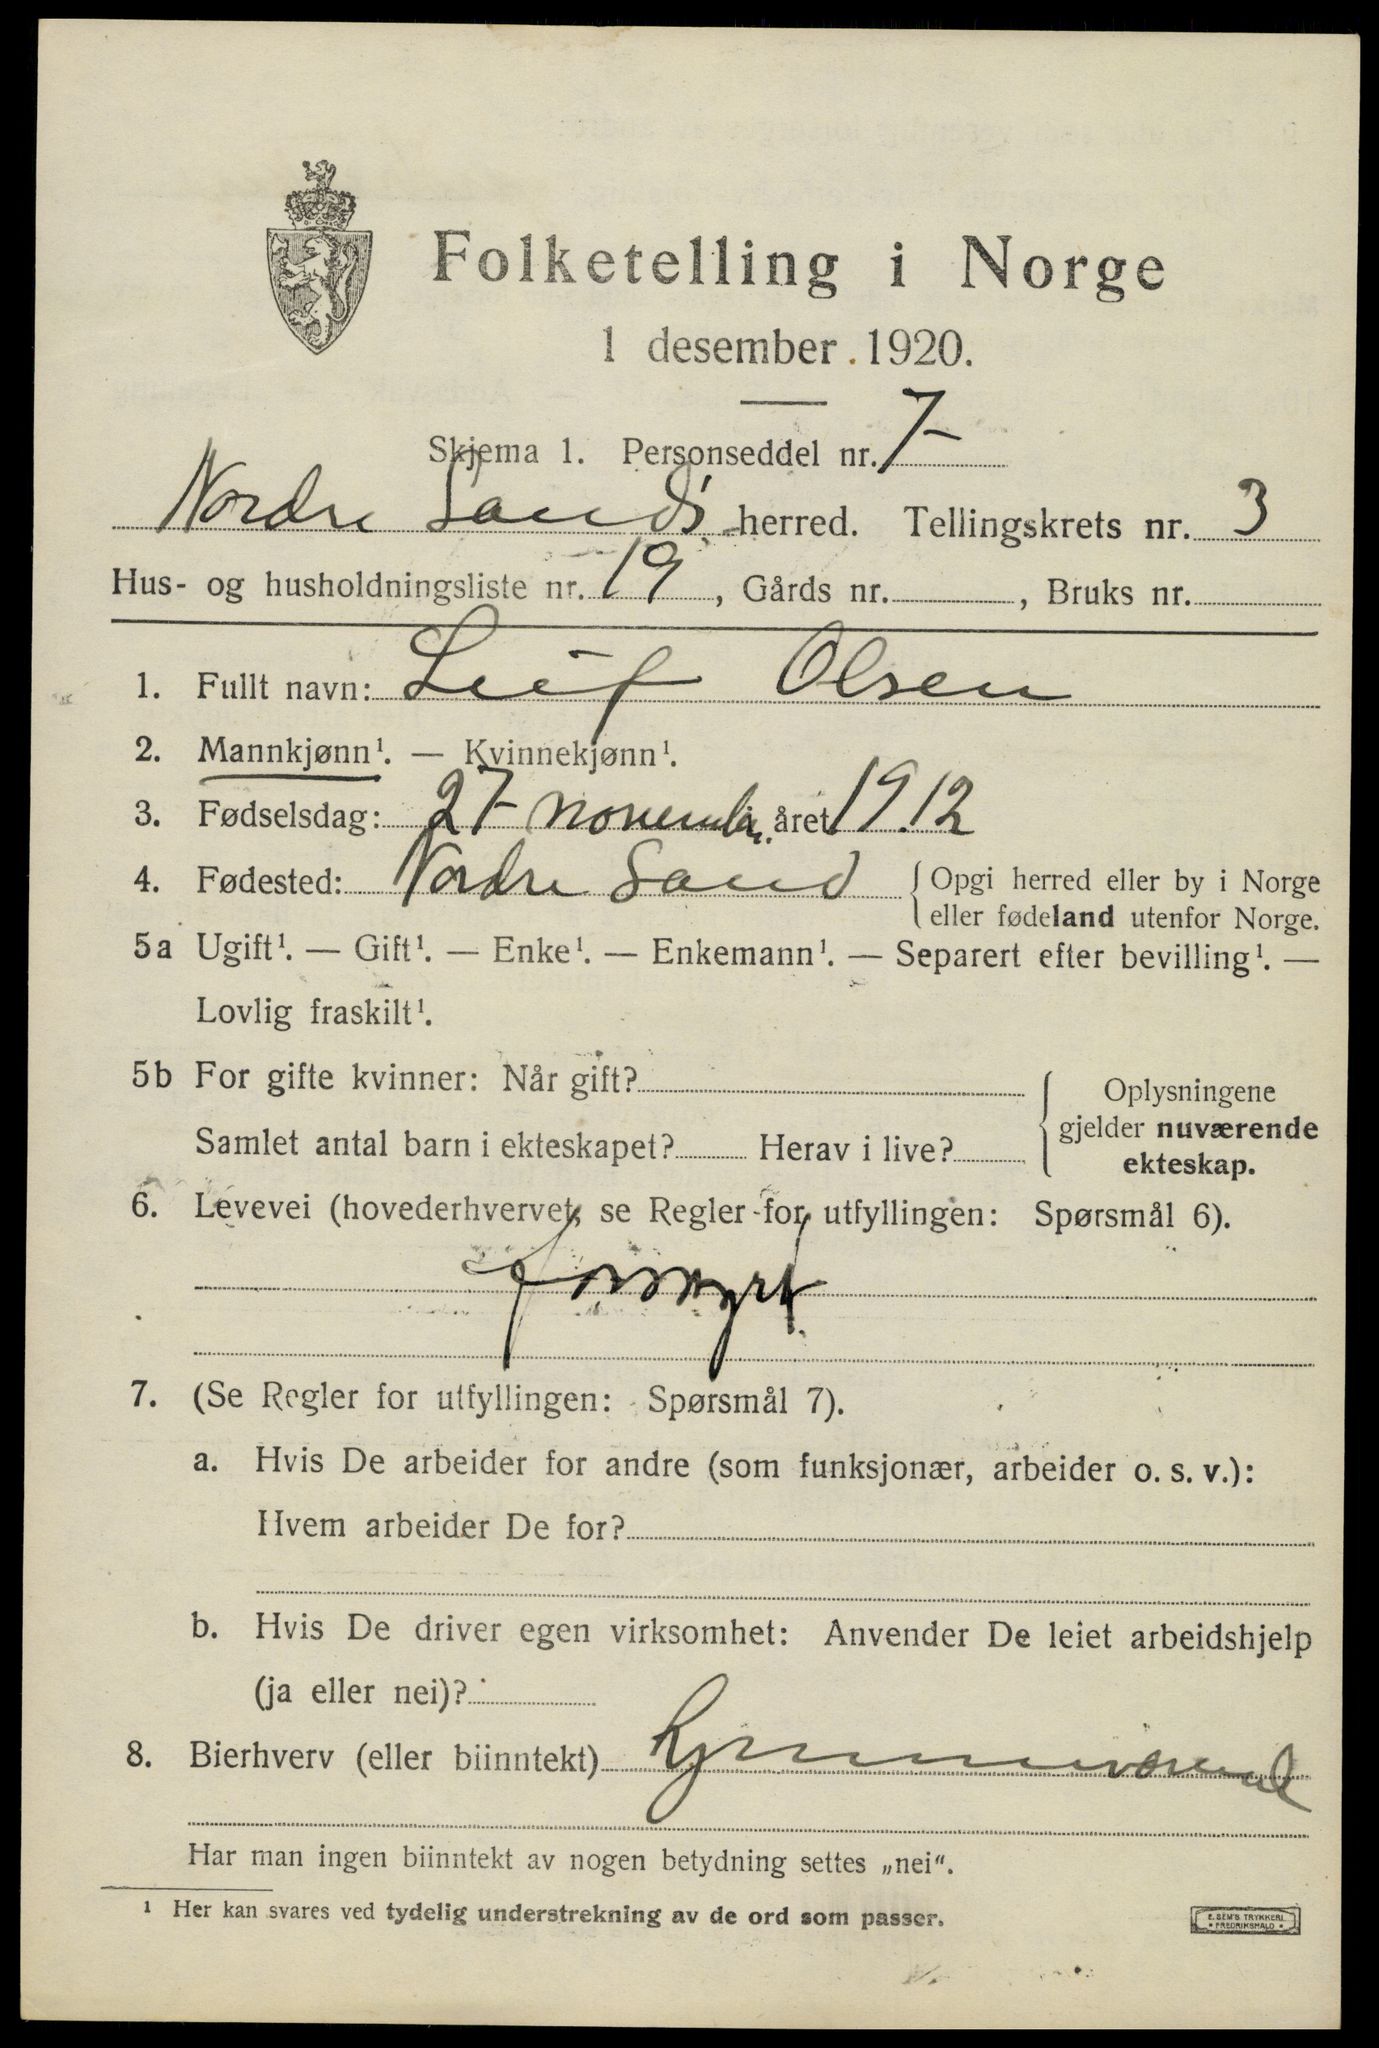 Folketelling i Norge
1 desember 1920.
Skjema 1. Personseddel nr. 7
Nordre Lands herred. Tellingskrets nr. 3
Hus- og husholdningsliste nr. 19, Gårds nr. , Bruks nr.
1. Fullt navn: Leif Olsen
2. Mannkjønn¹. — Kvinnekjønn¹.
3. Fødselsdag: 27 november året 1912
4. Fødested: Nordre Land { Opgi herred eller by i Norge
eller fødeland utenfor Norge.
5a Ugift¹. — Gift¹. — Enke¹. — Enkemann¹. — Separert efter bevilling¹. —
Lovlig fraskilt¹.
5b For gifte kvinner: Når gift?
Samlet antal barn i ekteskapet? Herav i live?
Oplysningene
gjelder nuværende
ekteskap.
6. Levevei (hovederhvervet, se Regler for utfyllingen: Spørsmål 6).
forsørget
7. (Se Regler for utfyllingen: Spørsmål 7).
a. Hvis De arbeider for andre (som funksjonær, arbeider o. s. v.):
Hvem arbeider De for?
b. Hvis De driver egen virksomhet: Anvender De leiet arbeidshjelp
(ja eller nei)?
8. Bierhverv (eller biinntekt) hjemmeværende
Har man ingen biinntekt av nogen betydning settes „nei“.
¹ Her kan svares ved tydelig understrekning av de ord som passer.
E. SEM'S TRYKKERI
* FREDRIKSHALD *